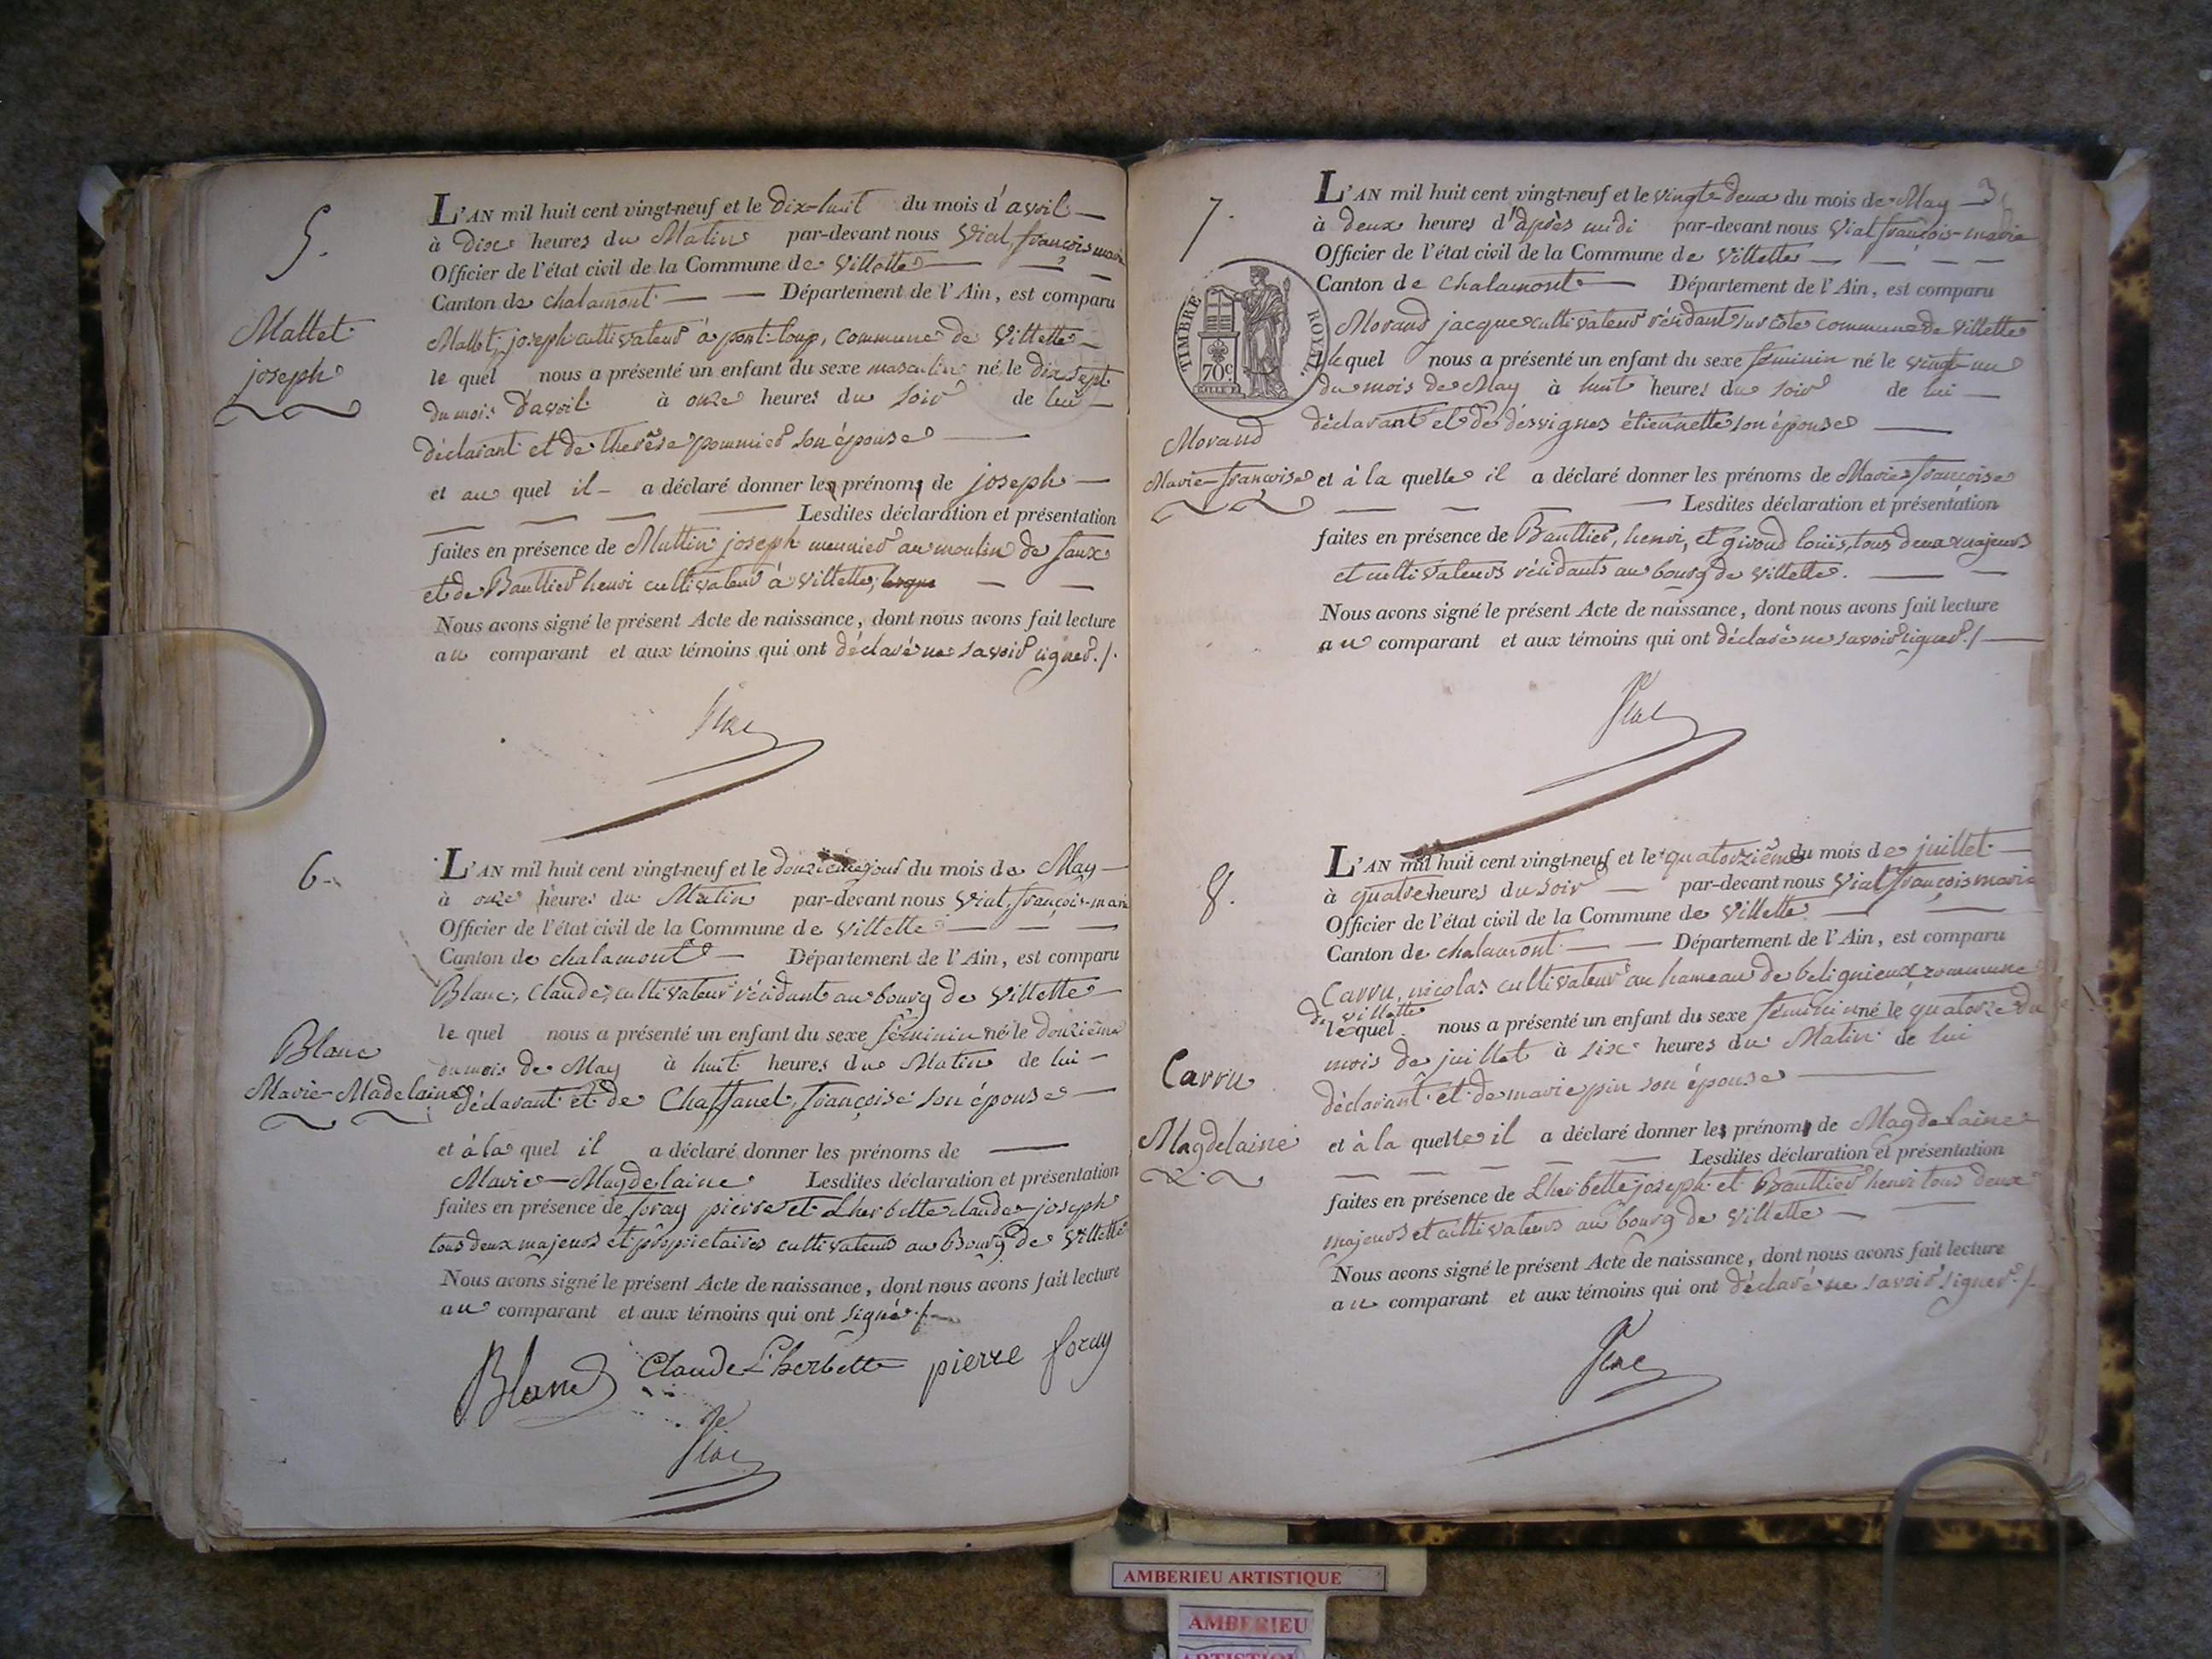 5.
Mallet
joseph
L'AN mil huit cent vingt-neuf et le dix-huit du mois d'avril
à dix heures du Matin par-devant nous Vial, françois marie
Officier de l'état civil de la Commune de Villette
Canton de chalamont Département de l'Ain, est comparu
Mallet, joseph cultivateur à pont-loup, commune de Villette
le quel nous a présenté un enfant du sexe masculin né le dix sept
du mois d'avril à onze heures du soir de lui
déclarant et de therèse pommier son épouse
et au quel il a déclaré donner les prénoms de joseph
Lesdites déclaration et présentation
faites en présence de Muttin joseph meunier au moulin de faux
et de Bauttier henri cultivateur à Villette,
Nous avons signé le présent Acte de naissance, dont nous avons fait lecture
au comparant et aux témoins qui ont déclaré ne savoir signer./.
Vial
6.
Blanc
Marie-Madelaine
L'AN mil huit cent vingt-neuf et le douzieme jour du mois de May
à onze heures du Matin par-devant nous Vial, françois-marie
Officier de l'état civil de la Commune de Villette
Canton de chalamont Département de l'Ain, est comparu
Blanc, Claude, cultivateur résidant au bourg de Villette
le quel nous a présenté un enfant du sexe féminin né le douzième
du mois de May à huit heures du Matin de lui
déclarant et de Chaffanel, françoise son épouse
et à la quel il a déclaré donner les prénoms de
Marie-Magdelaine Lesdites déclaration et présentation
faites en présence de foray pierre et Lherbette claude-joseph
tous deux majeurs et propriétaires cultivateurs au Bourg de Villette
Nous avons signé le présent Acte de naissance, dont nous avons fait lecture
au comparant et aux témoins qui ont signé./.
Blanc Claude Lherbette pierre foray
Vial
7.
TIMBRE ROYAL
70c
Morand
Marie-françoise
L'AN mil huit cent vingt-neuf et le vingt-deux du mois de May 3
à deux heures d'après midi par-devant nous Vial françois-marie
Officier de l'état civil de la Commune de Villette
Canton de chalamont Département de l'Ain, est comparu
Morand jacque cultivateur résidant sur côte commune de Villette
lequel nous a présenté un enfant du sexe féminin né le vingt-un
du mois de May à huit heures du soir de lui
déclarant et de desvignes étiennette son épouse
et à la quelle il a déclaré donner les prénoms de Marie françoise
Lesdites déclaration et présentation
faites en présence de Bauttier, henri, et giroud louis, tous deux majeurs
et cultivateurs résidants au bourg de Villette.
Nous avons signé le présent Acte de naissance, dont nous avons fait lecture
au comparant et aux témoins qui ont déclaré ne savoir signer./
Vial
8.
Carru
Magdelaine
L'AN mil huit cent vingt-neuf et le quatorzième du mois de juillet
à quatre heures du soir par-devant nous Vial françois marie
Officier de l'état civil de la Commune de Villette
Canton de chalamont Département de l'Ain, est comparu
Carru, nicolas cultivateur au hameau de beligneux commune
de villette
lequel nous a présenté un enfant du sexe féminin né le quatorze du
mois de juillet à six heures du Matin de lui
déclarant et de marie pin son épouse
et à la quelle il a déclaré donner les prénoms de Magdelaine
Lesdites déclaration et présentation
faites en présence de Lherbette joseph et Bauttier henri tous deux
majeurs et cultivateurs au bourg de Villette
Nous avons signé le présent Acte de naissance, dont nous avons fait lecture
au comparant et aux témoins qui ont déclaré ne savoir signer./.
Vial
AMBERIEU ARTISTIQUE
AMBERIEU
ARTISTIQUE